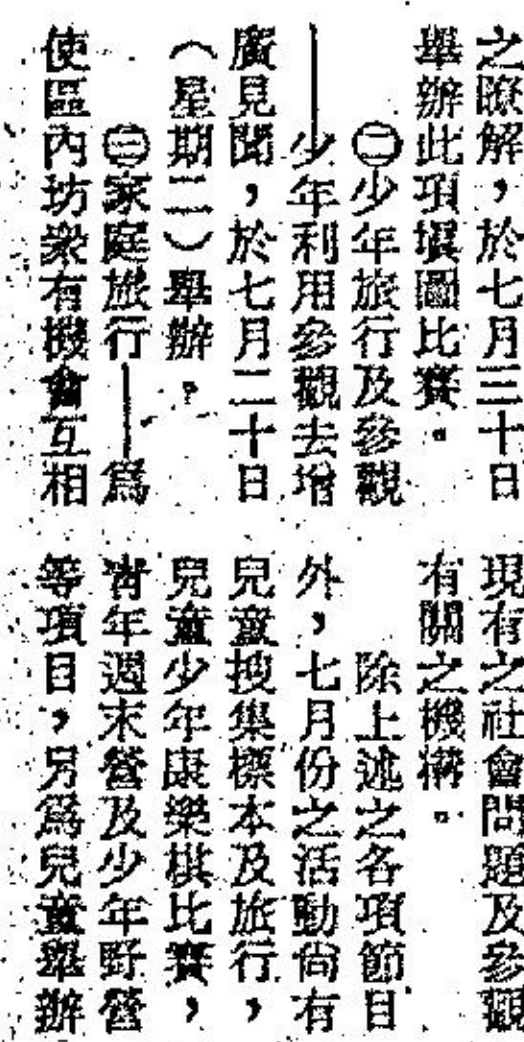 之瞭解，於七月三十日
舉辦此項塡圖比賽。
㊁少年旅行及參觀
——少年利用參觀去增
廣見聞，於七月二十日
（星期二）舉辦。
㊂家庭旅行——爲
使區內坊衆有機會互相
現有之社會問題及參觀
有關之機構。
除上述之各項節目
外，七月份之活動尚有
兒童搜集標本及旅行，
兒童少年康樂棋比賽，
靑年週末營及少年野營
等項目，另爲兒童舉辦